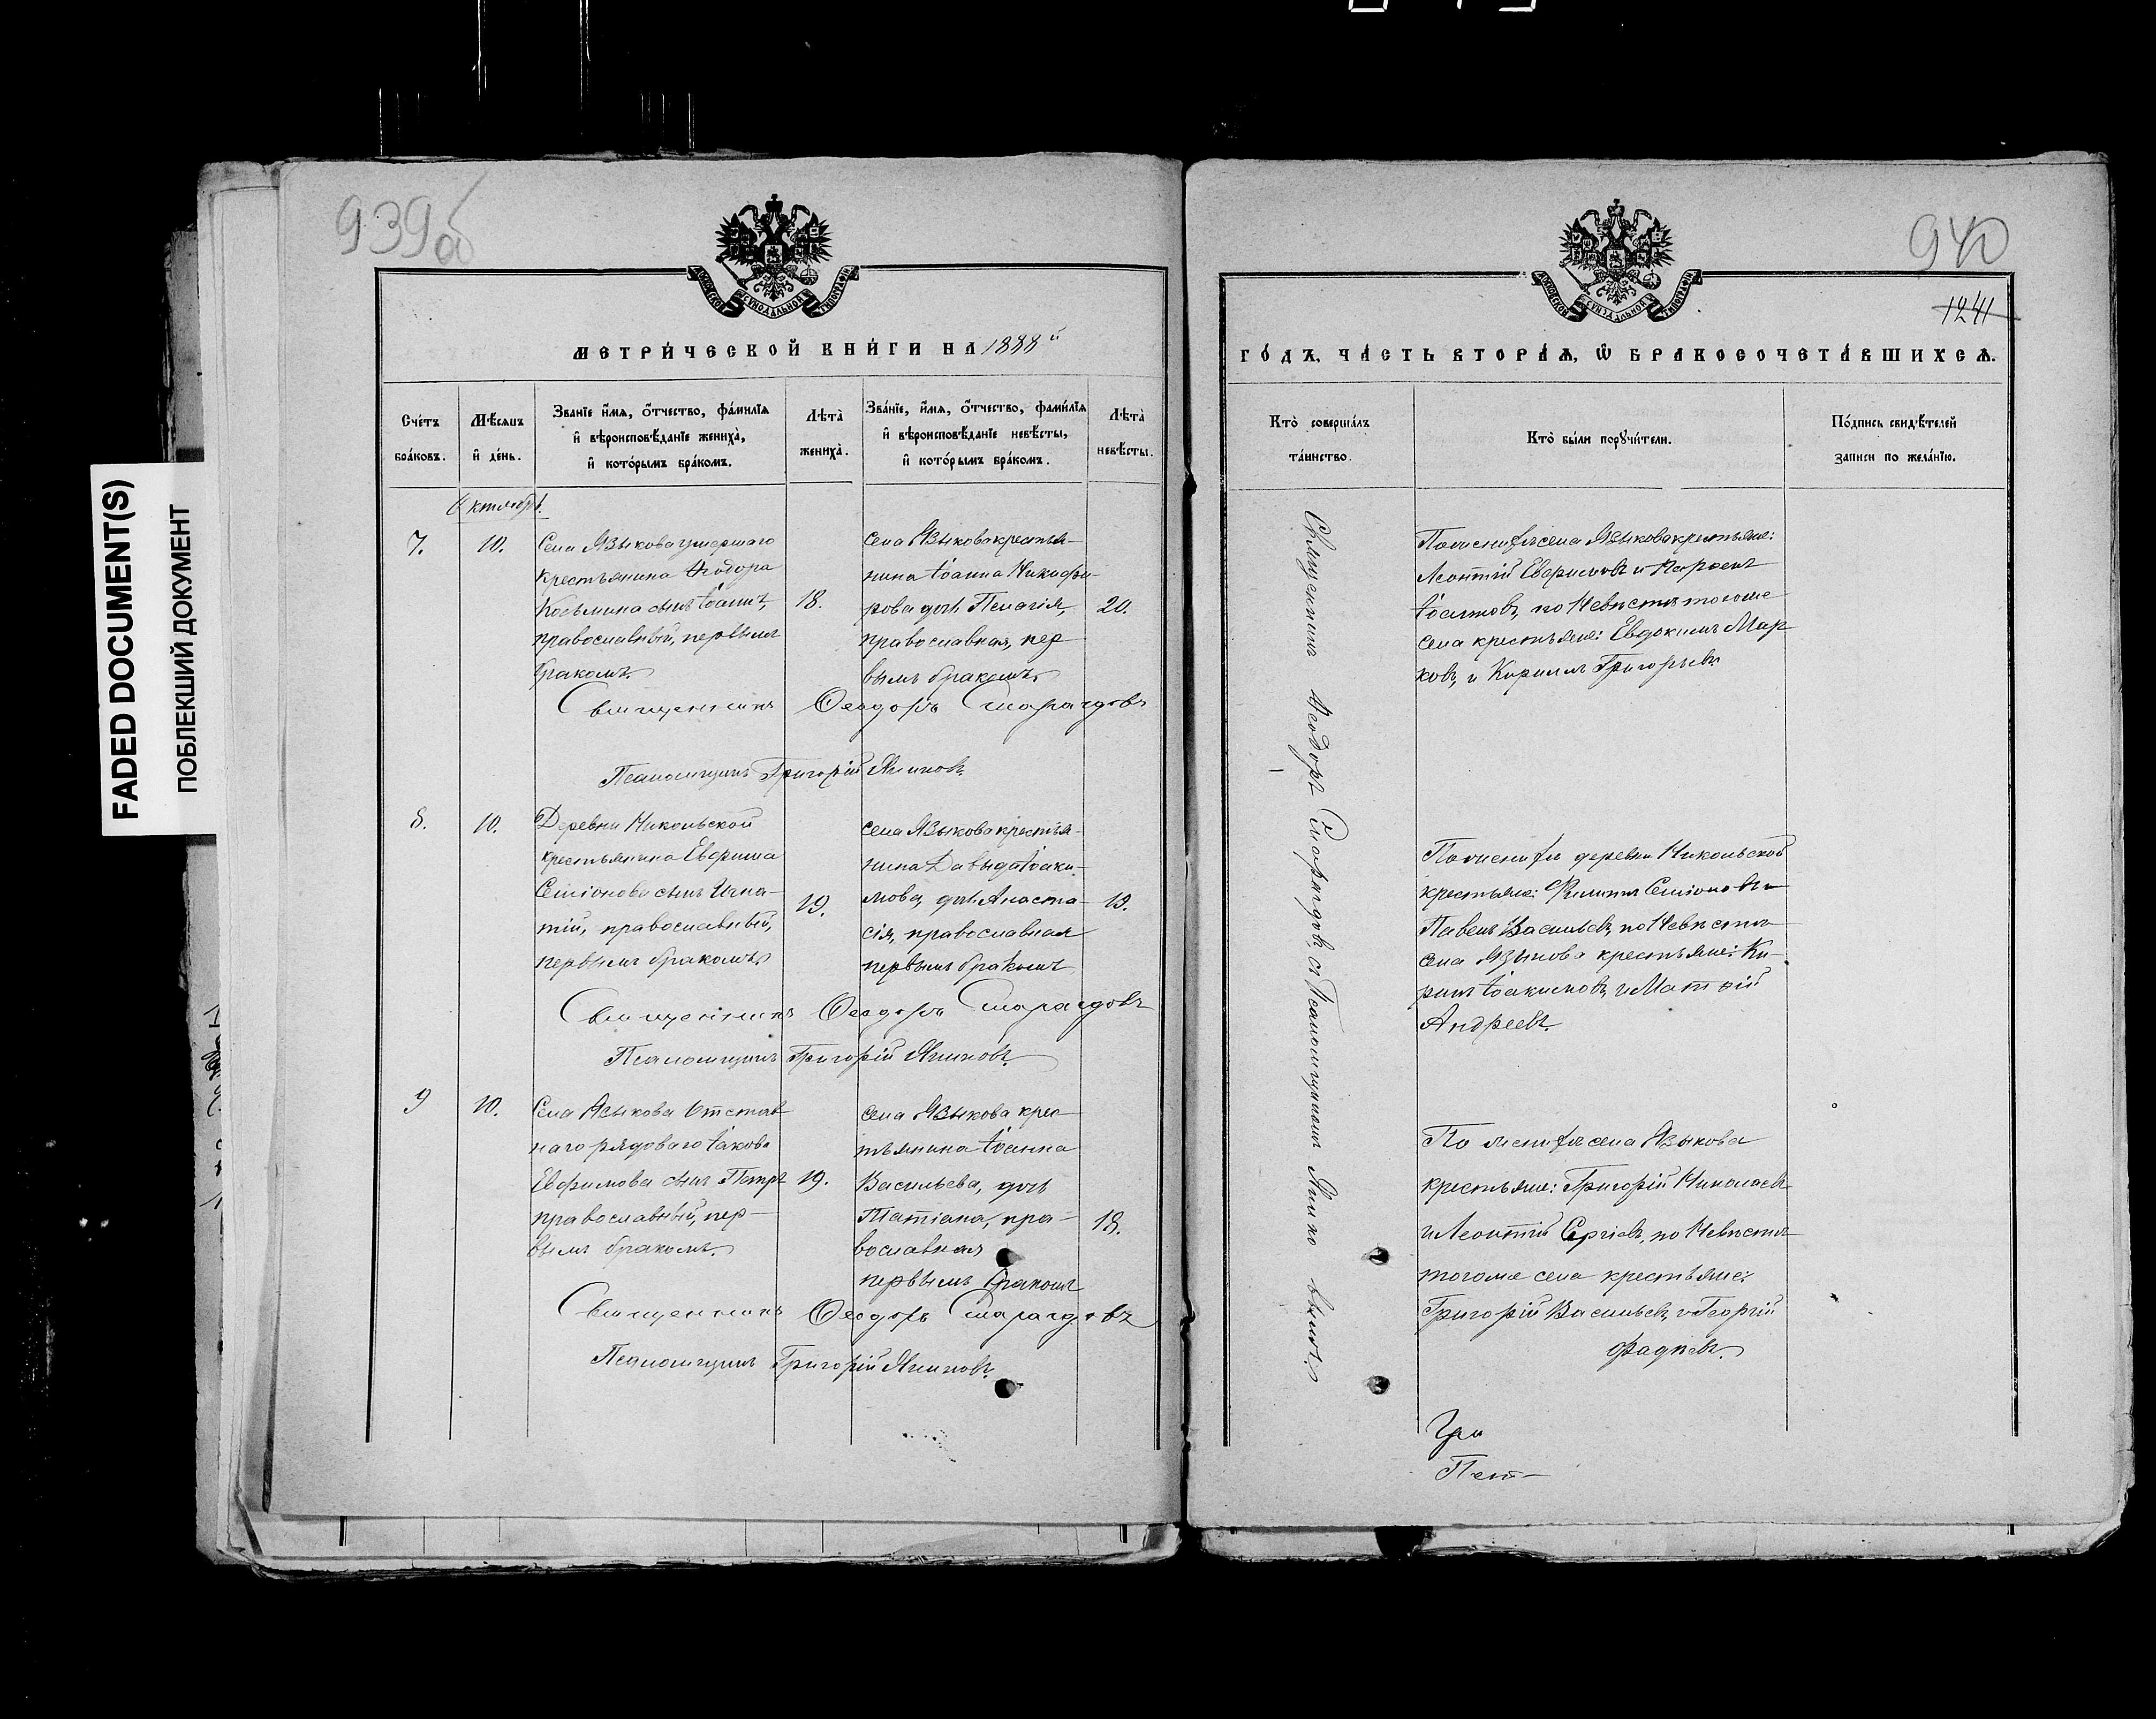 FADED DOCUMENT(S)
ПОБЛЕКШИЙ ДОКУМЕНТ
939б
МЕТРИ́ЧЕСКОЙ КНИ́ГИ НА 1888й
Сче́тъ бра́ковъ.
Мѣ́сяцъ и де́нь.
Зва́нїе и҆́мѧ, ѻ҆́тчество, фамилїѧ
и҆ вѣроисповѣ́данїе жениха̀,
и҆ кото́рымъ бра́комъ.
Лѣта̀ жениха̀.
Зва́нїе, и҆́мѧ, ѻ҆́тчество, фамилїѧ
и҆ вѣроисповѣ́данїе невѣ́сты,
и҆ кото́рымъ бра́комъ.
Лѣта̀ невѣ́сты.
Октябрь.
7.
10.
Села Языкова умершаго
крестьянина Ѳеодора
Косьмина сынъ Іоаннъ,
православный, первымъ
бракомъ.
18.
села Языкова крестья-
нина Іоанна Никифо-
рова дочь Пелагія,
православная, пер
вымъ бракомъ.
20.
Священникъ Ѳеодоръ Смарагдовъ
Псаломщикъ Григорій
8.
10.
Деревни Никольской
крестьянина Евфима
Семіонова сынъ Игна-
тій, православный,
первымъ бракомъ
19.
села Языкова крестья-
нина Давыда Іоаки-
мова, дочь Анаста-
сія, православная
первымъ бракомъ
19.
Священникъ Ѳеодоръ Смарагдовъ
Псаломщикъ Григорій
9
10.
Села Языкова Отстав
наго рядоваго Іакова
Евфимова сынъ Петръ
православный, пер-
вымъ бракомъ.
19.
села Языкова крес
тьянина Іоанна
Васильева, дочь
Татіана, пра-
вославная
первымъ бракомъ
18.
Священникъ Ѳеодоръ Смарагдовъ
Псаломщикъ Григорій
940
1241
ГО́ДЪ, ЧА́СТЬ ВТОРА́Ѧ, Ѽ БРАКОСОЧЕТА́ВШИХСѦ.
Кто̀ соверша́лъ
та́инство.
Кто̀ бы́ли порꙋчи́тели.
По́дпись свидѣ́телей
записи по жела́нїю.
Священникъ Ѳеодоръ Смарагдовъ, съ Псаломщикомъ
По женихѣ села Языкова крестьяне:
Леонтій Евфимовъ и Карпъ
Іоанновъ, по Невѣстѣ тогоже
села крестьяне: Евдокимъ Мар
ковъ, и Кириллъ Григорьевъ
По женихѣ деревни Никольской
крестьяне: Филиппъ Семіоновъ и
Павелъ Васильевъ, по Невѣстѣ
села Языкова крестьяне: Ки-
рилъ Іоакимовъ, и Матѳій
Андреевъ.
По женихѣ села Языкова
крестьяне: Григорій Николаевъ
и Леонтій Сергіевъ, по Невѣстѣ
тогоже села крестьяне:
Григорій Васильевъ, и Георгій
Фадѣевъ.